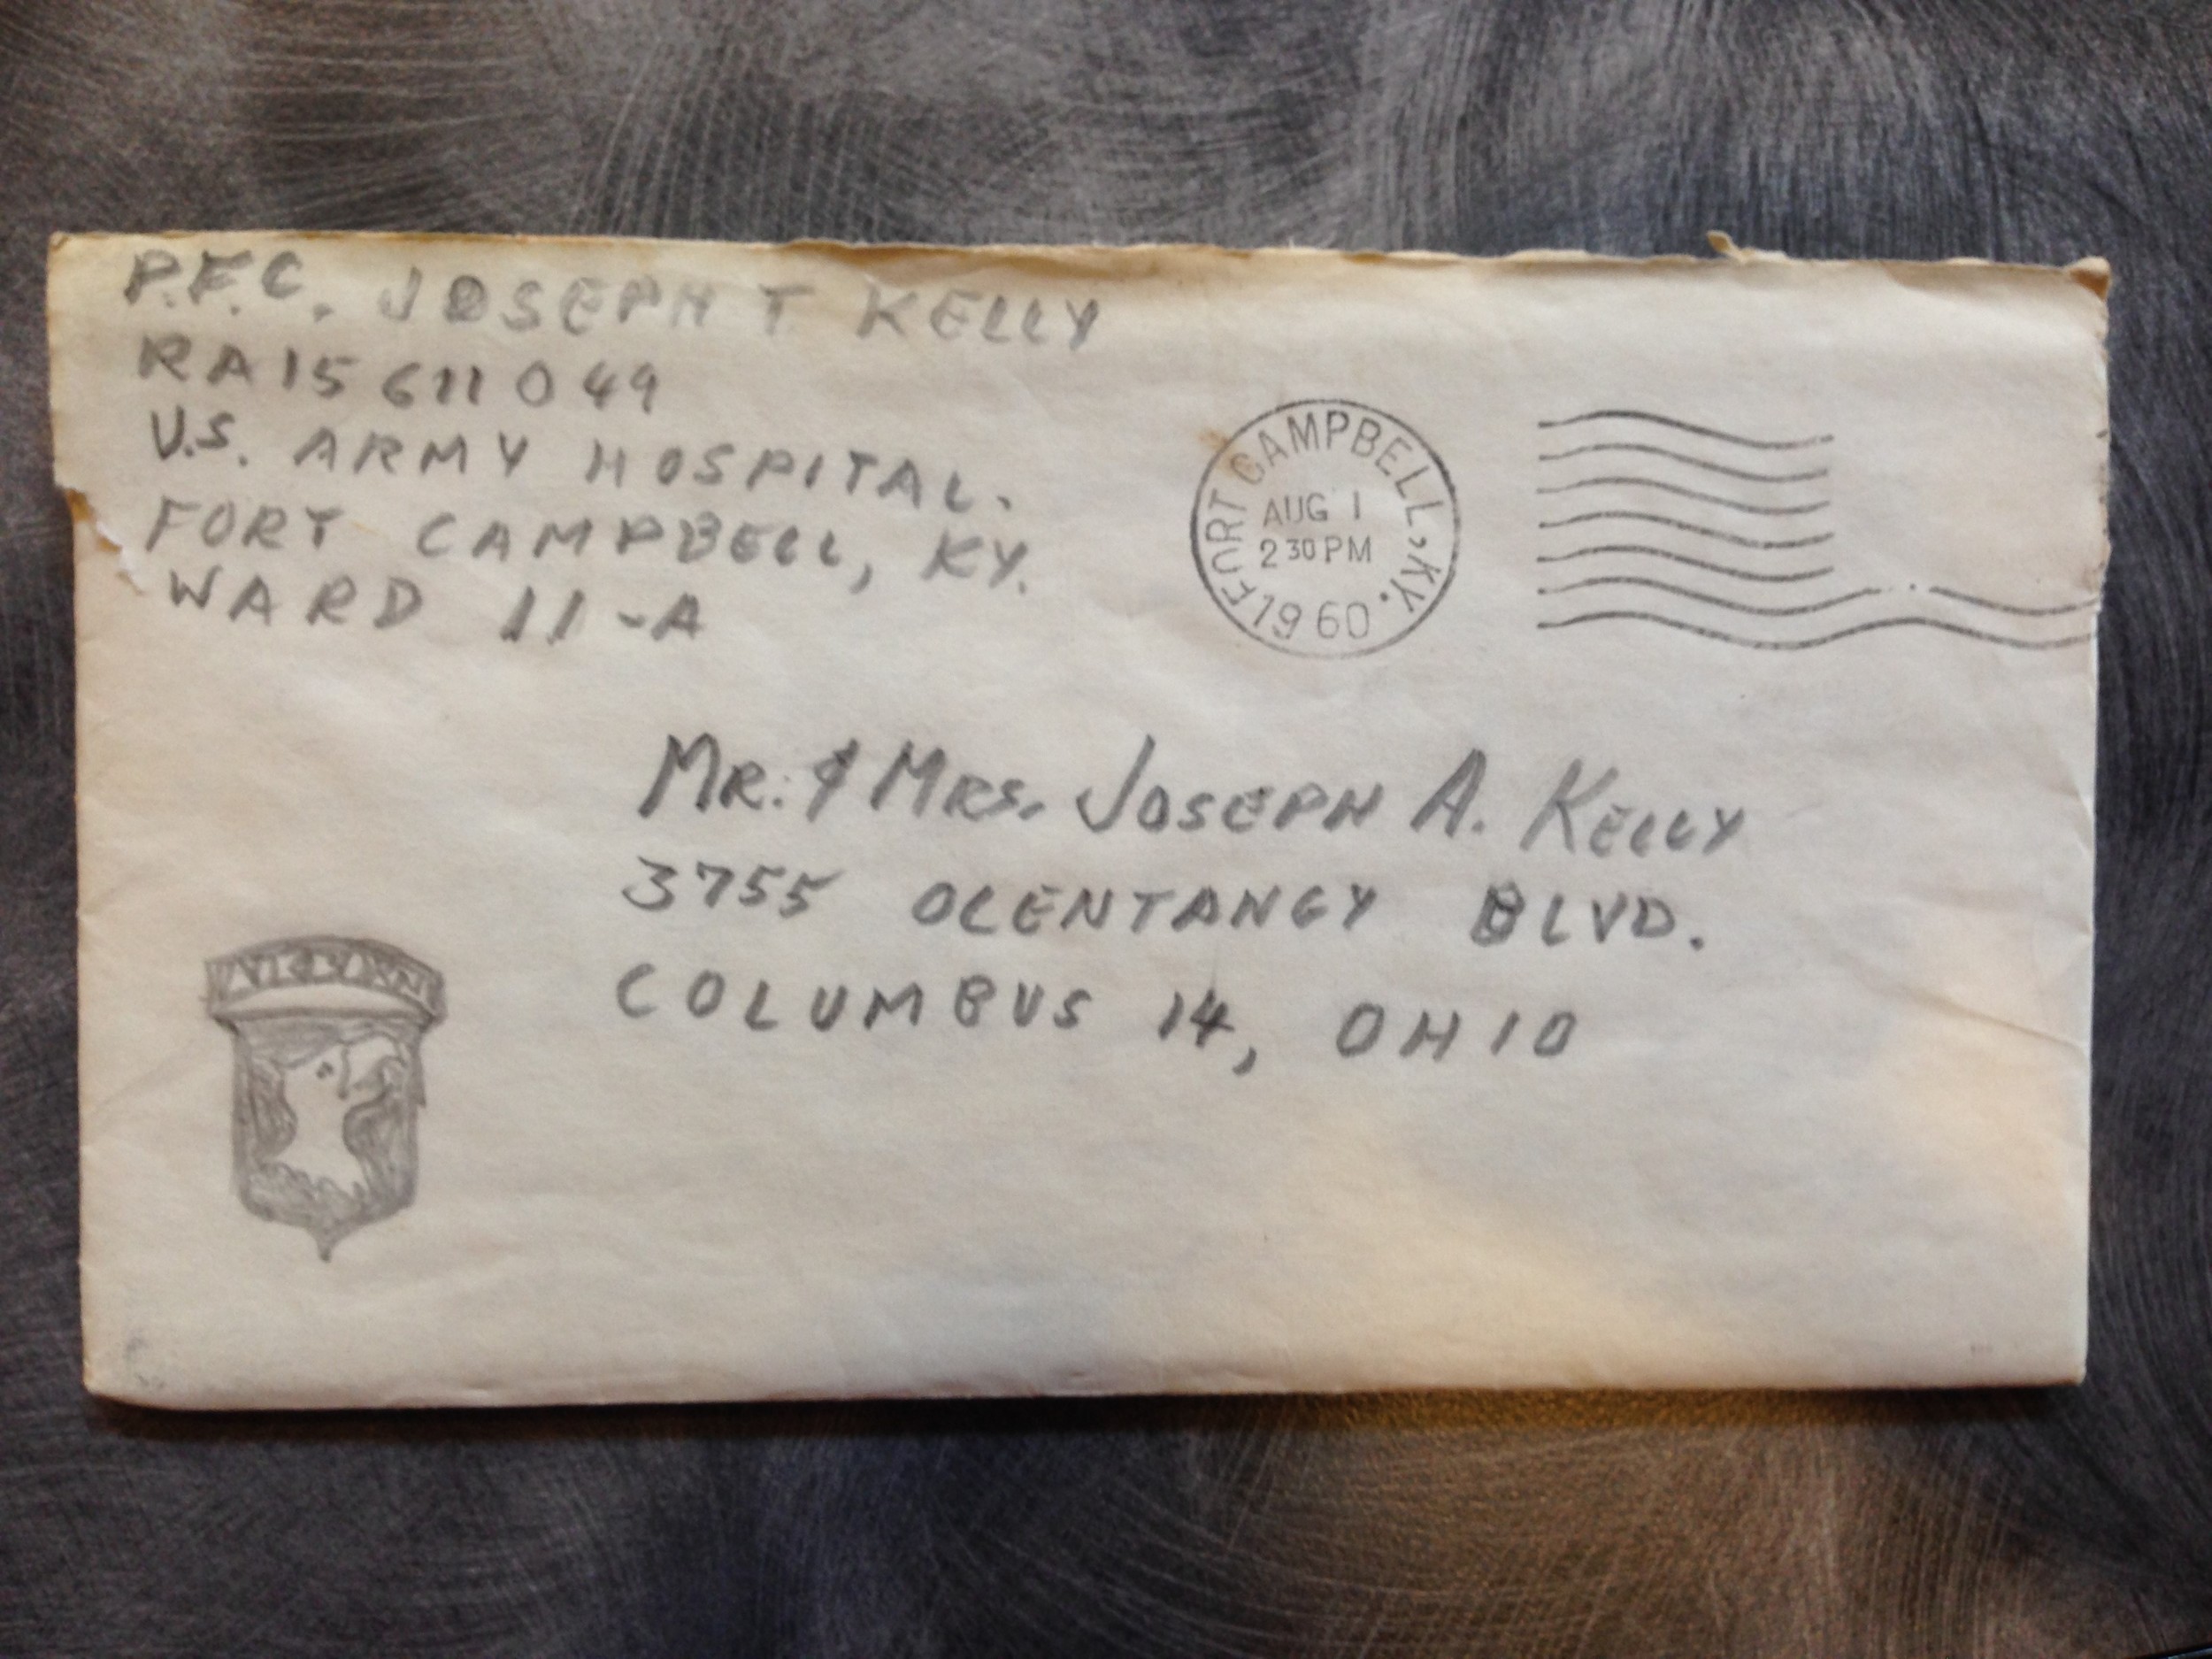 P.F.C. JOSEPH T KELLY
RA 15 611 049
U.S. ARMY HOSPITAL.
FORT CAMPBELL, KY.
WARD 11-A
FORT CAMPBELL, KY.
AUG 1
2 30 PM
1960
MR. & MRS. JOSEPH A. KELLY
3755 OLENTANGY BLVD.
COLUMBUS 14, OHIO
AIRBORN